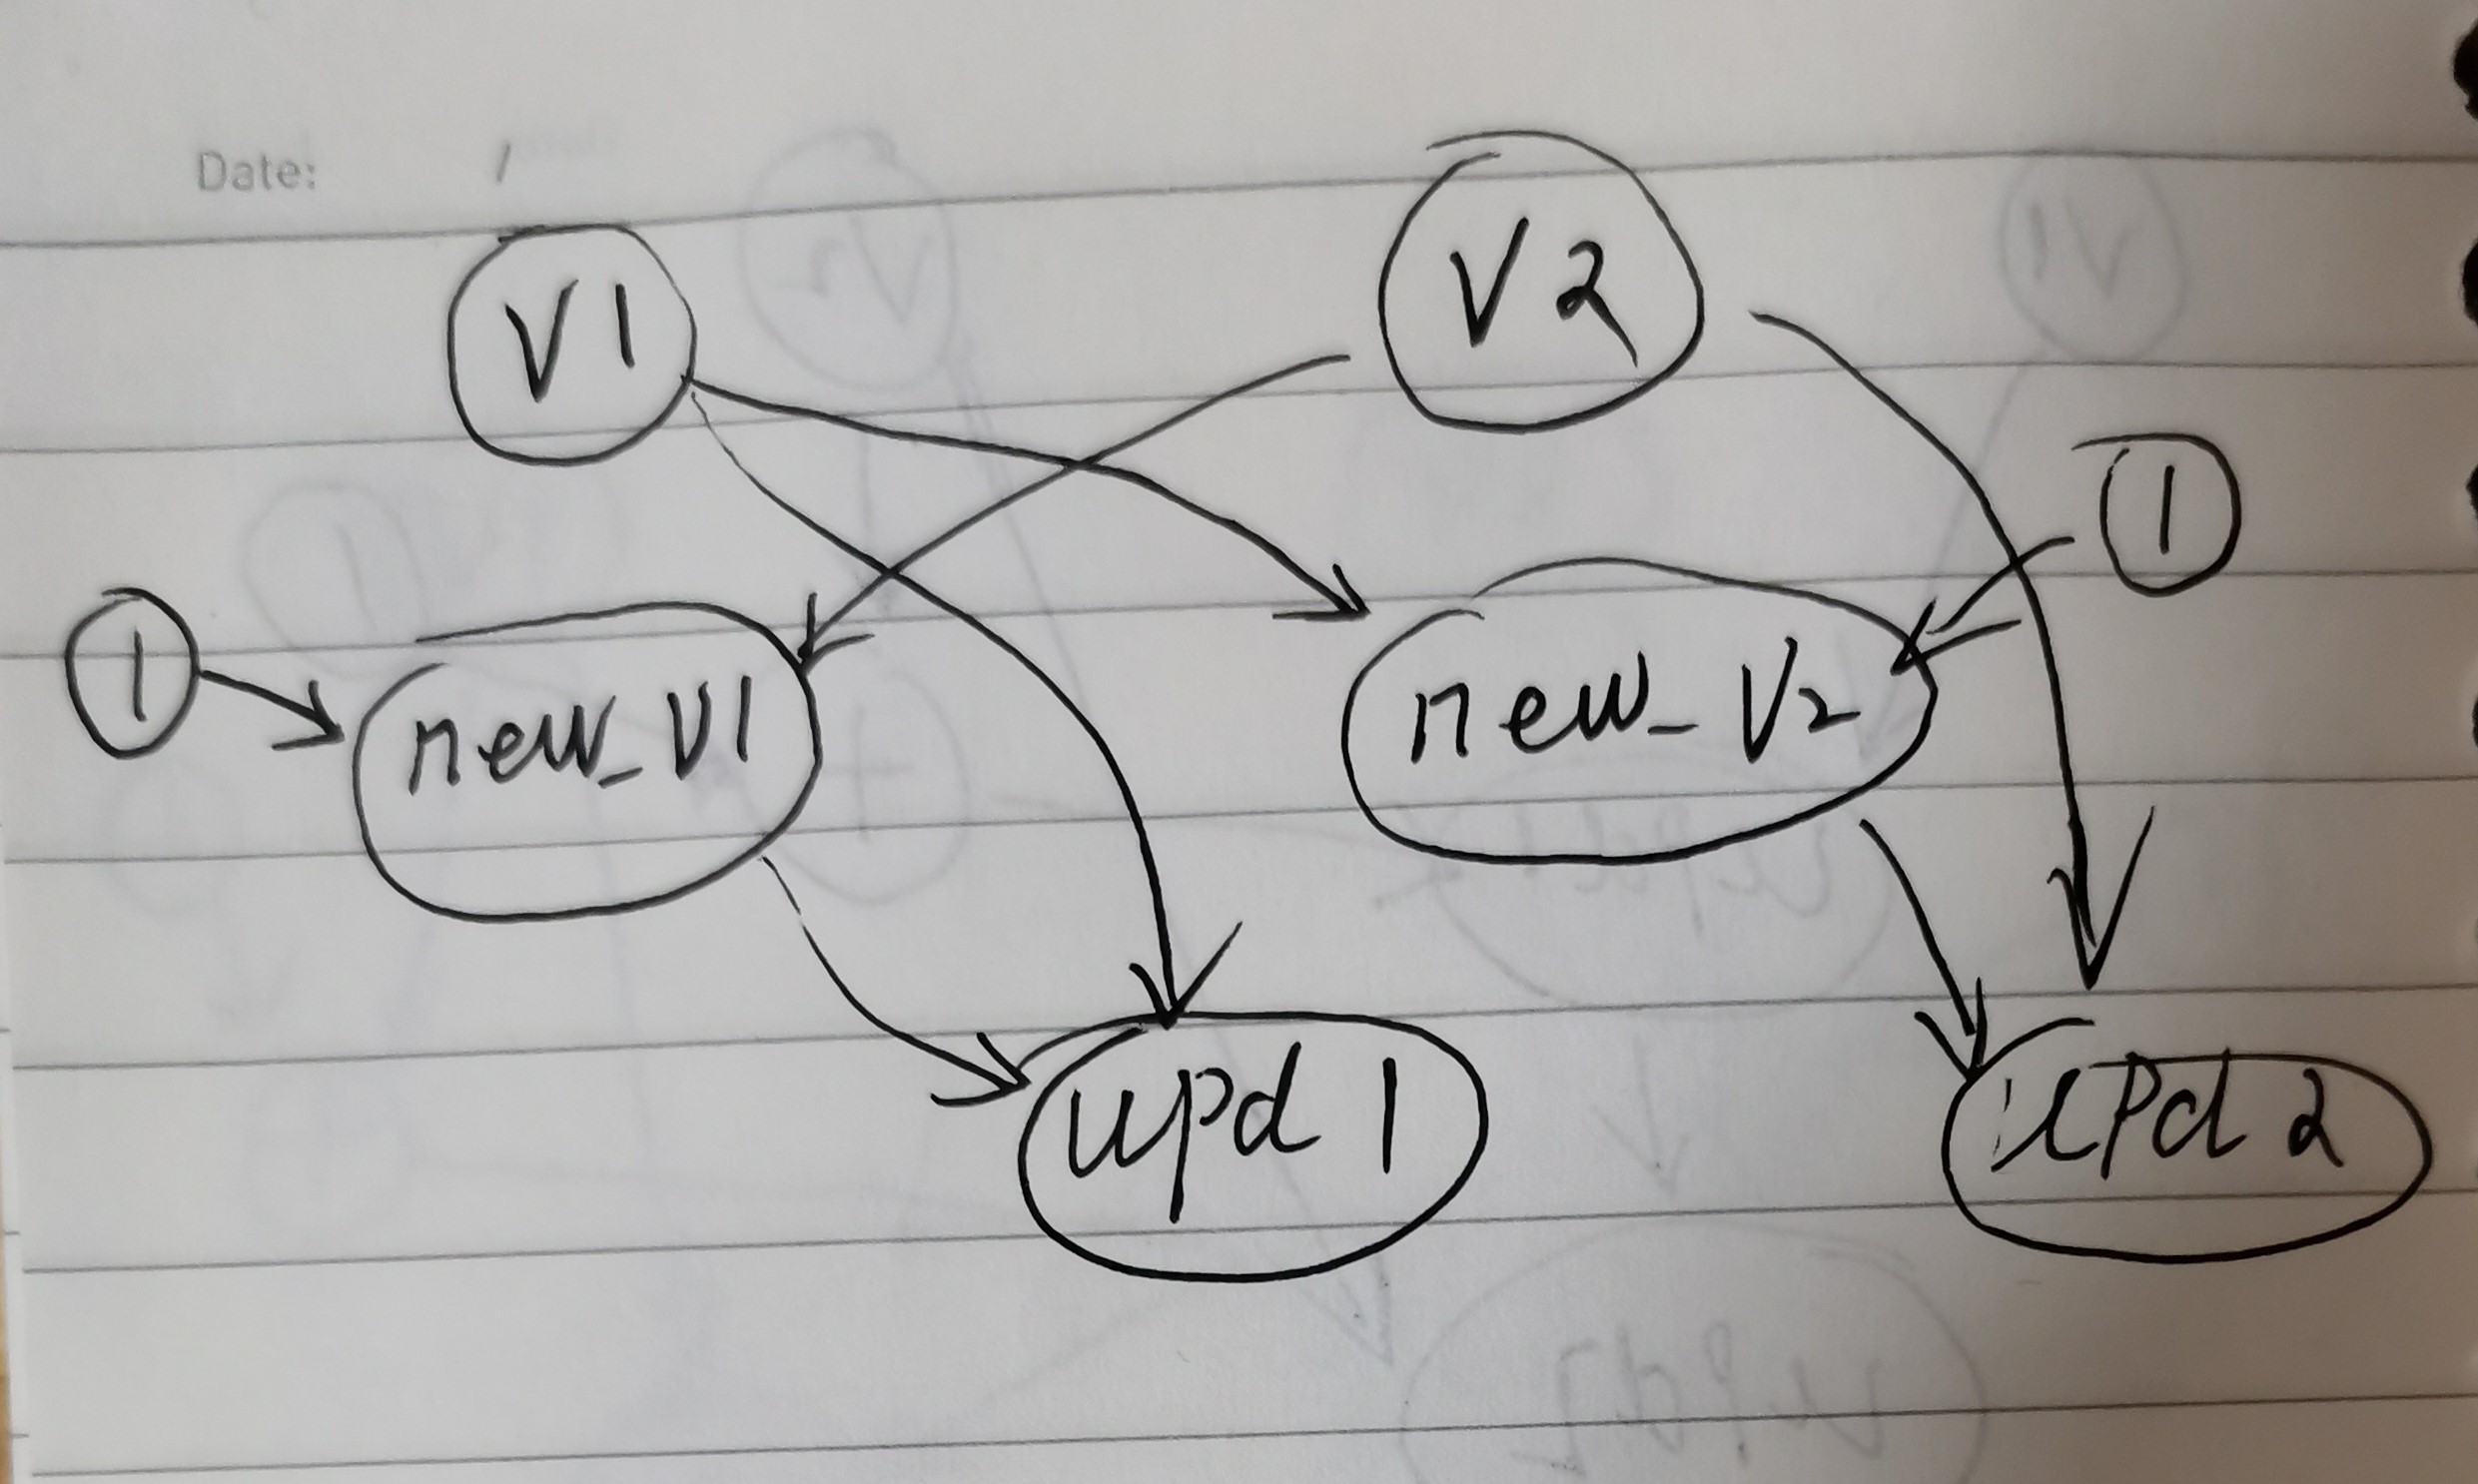 Date: /
V1
V2
1
1
new_V1
new_V2
upd 1
upd 2